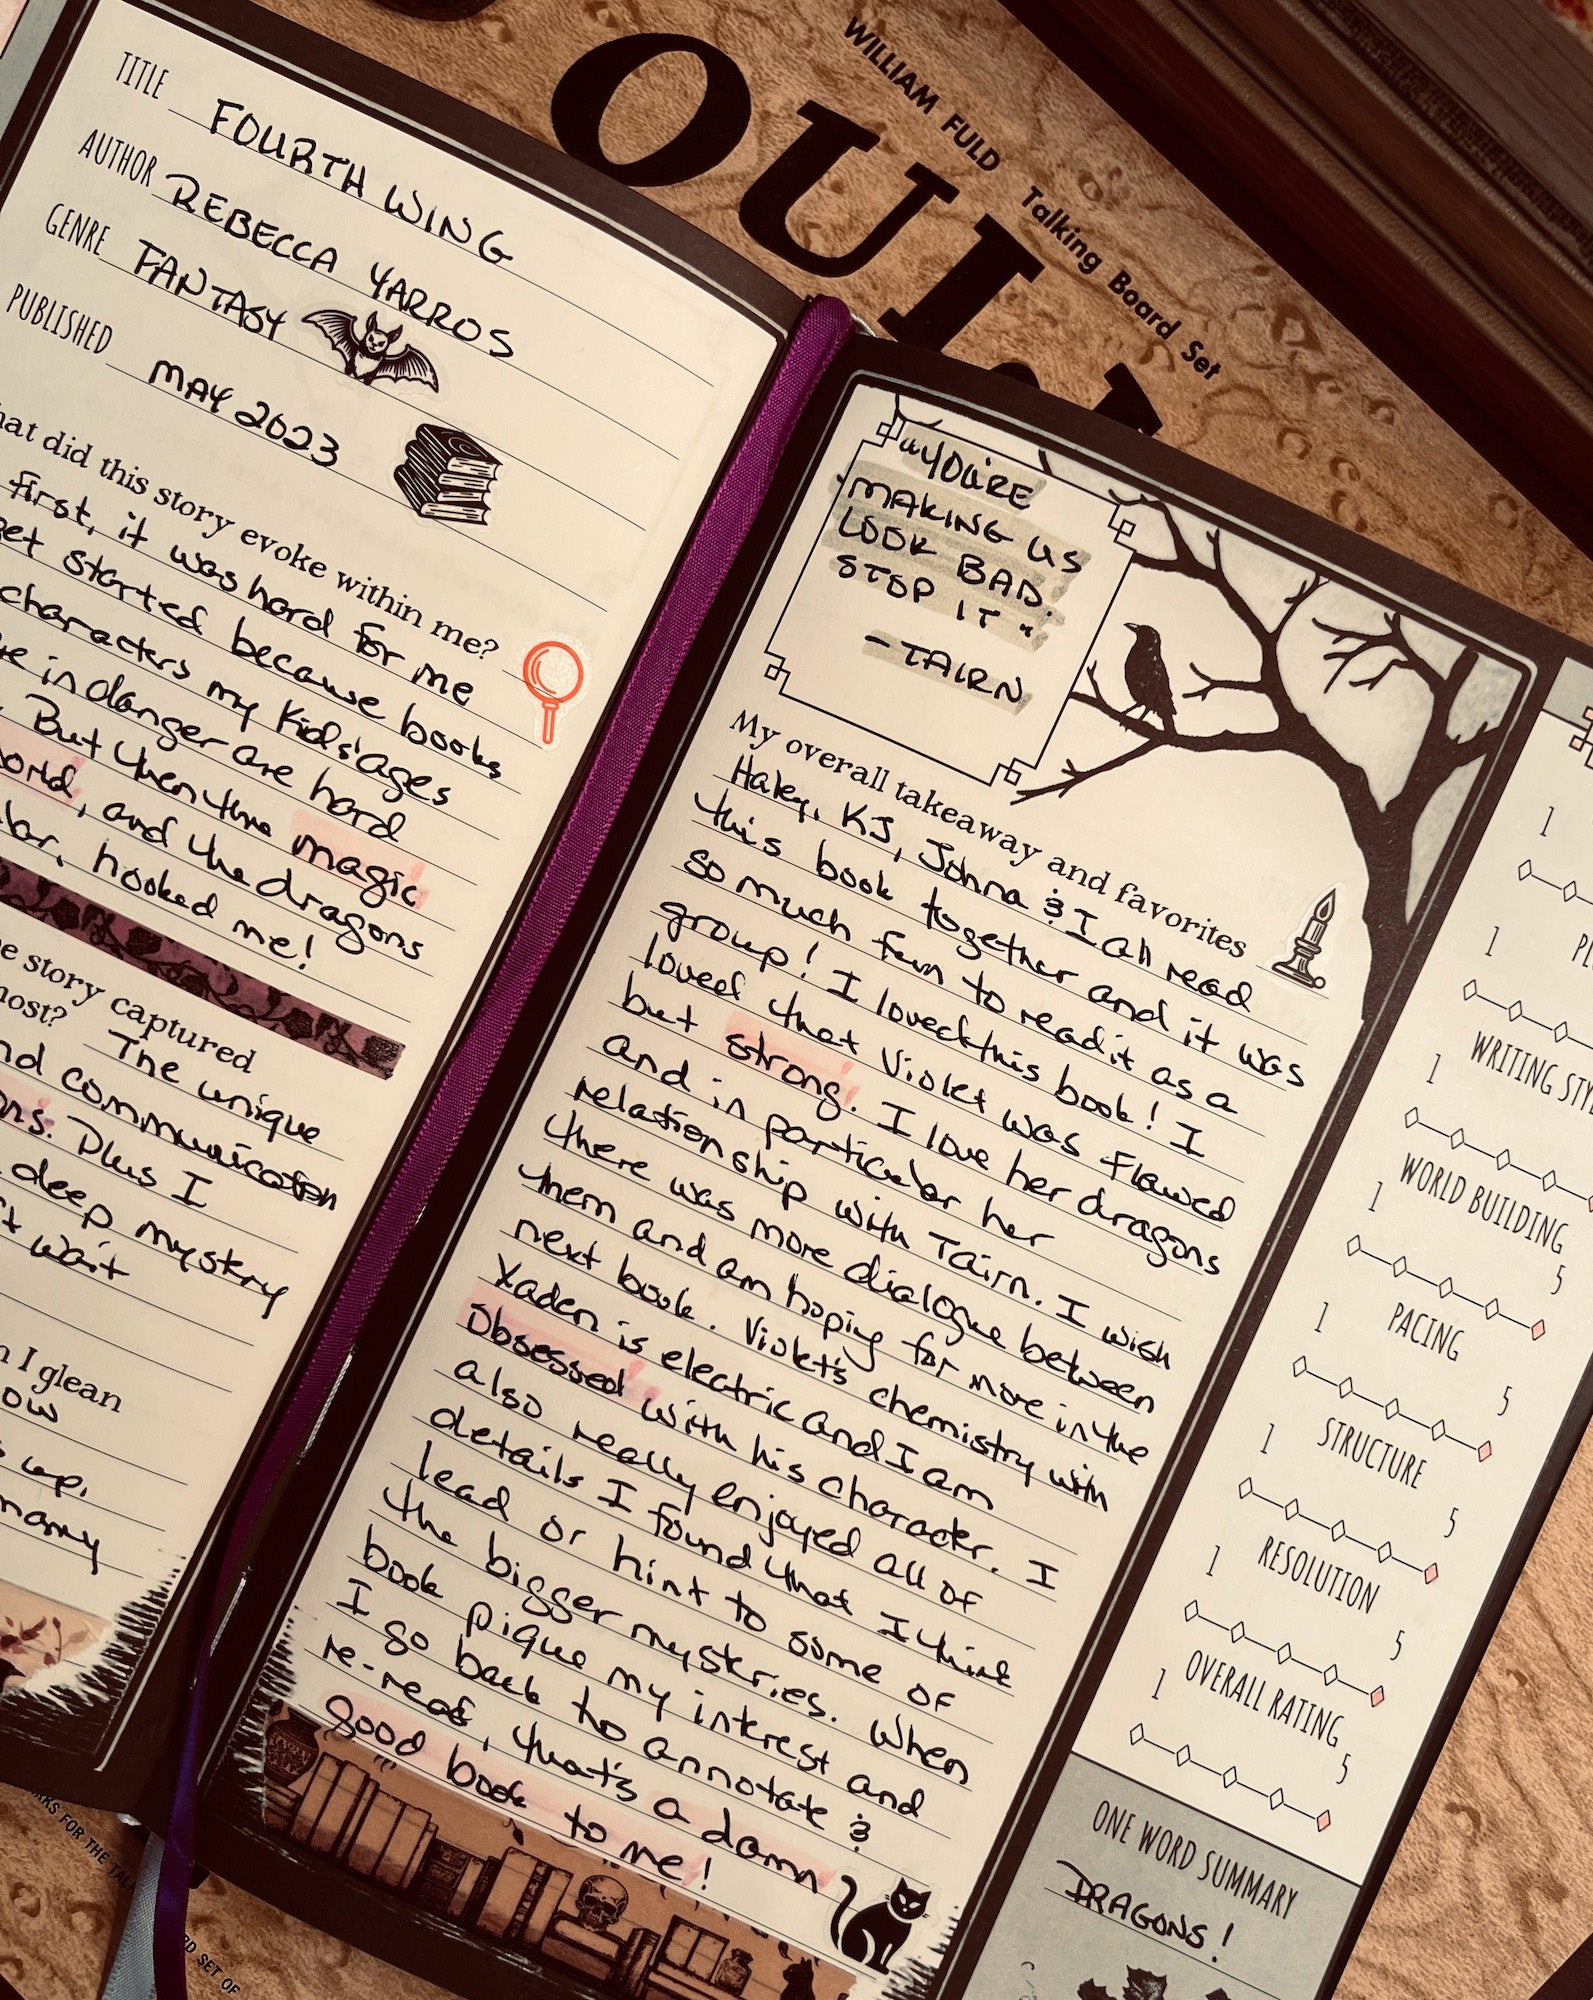 WILLIAM FULD Talking Board Set
OUIJ
TITLE FOURTH WING
AUTHOR REBECCA YARROS
GENRE FANTASY
PUBLISHED MAY 2023
hat did this story evoke within me?
first, it was hard for me
get started because books
characters my kids' ages
in danger are hard
But then the magic
world, and the dragons
hooked me!
story captured
most? The unique
nd communication
ons. Plus I
deep mystery
wait
I glean
ow
up.
many
"YOU'RE
MAKING US
LOOK BAD.
STOP IT"
-TAIRN
My overall takeaway and favorites
Haley, KJ, Johna & I all read
this book together and it was
so much fun to read it as a
group! I loved this book! I
loved that Violet was flawed
but strong. I love her dragons
and in particular her
relationship with Tairn. I wish
there was more dialogue between
them and am hoping for more in the
next book. Violet's chemistry with
Xaden is electric and I am
Obsessed with his character. I
also really enjoyed all of
details I found that I think
lead or hint to some of
the bigger mysteries. When
book pique my interest and
I go back to annotate &
re-read, that's a damn
good book to me!
1
1
WRITING STY
1
WORLD BUILDING
1 5
PACING
1 5
STRUCTURE
1 5
RESOLUTION
1 5
OVERALL RATING
1 5
ONE WORD SUMMARY
DRAGONS!
FOR THE
SET OF